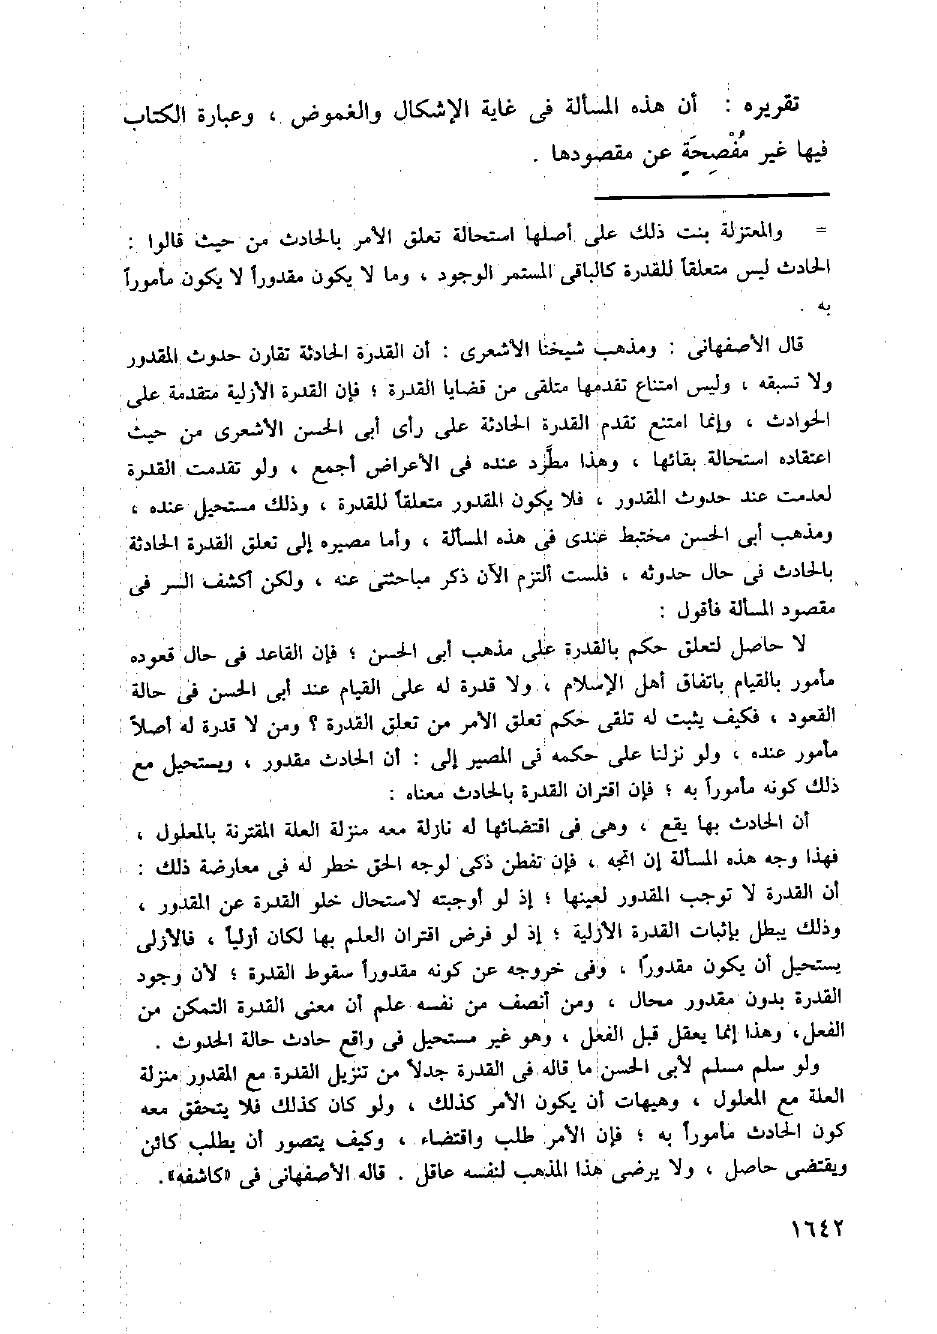 تقريره : أن هذه المسألة فى غاية الإشكال والغموض ، وعبارة الكتاب
فيها غير مُفْصِحَةٍ عن مقصودها .
= والمعتزلة بنت ذلك على أصلها استحالة تعلق الأمر بالحادث من حيث قالوا :
الحادث ليس متعلقاً للقدرة كالباقى المستمر الوجود ، وما لا يكون مقدوراً لا يكون مأموراً
به .
قال الأصفهانى : ومذهب شيخنا الأشعرى : أن القدرة الحادثة تقارن حدوث المقدور
ولا تسبقه ، وليس امتناع تقدمها متلقى من قضايا القدرة ؛ فإن القدرة الأزلية متقدمة على
الحوادث ، وإنما امتنع تقدم القدرة الحادثة على رأى أبى الحسن الأشعرى من حيث
اعتقاده استحالة بقائها ، وهذا مطَّرد عنده فى الأعراض أجمع ، ولو تقدمت القدرة
لعدمت عند حدوث المقدور ، فلا يكون المقدور متعلقاً للقدرة ، وذلك مستحيل عنده ،
ومذهب أبى الحسن مختبط عندى فى هذه المسألة ، وأما مصيره إلى تعلق القدرة الحادثة
بالحادث فى حال حدوثه ، فلست ألتزم الآن ذكر مباحثتى عنه ، ولكن أكشف السر فى
مقصود المسألة فأقول :
لا حاصل لتعلق حكم بالقدرة على مذهب أبى الحسن ؛ فإن القاعد فى حال قعوده
مأمور بالقيام باتفاق أهل الإسلام ، ولا قدرة له على القيام عند أبى الحسن فى حالة
القعود ، فكيف يثبت له تلقى حكم تعلق الأمر من تعلق القدرة ؟ ومن لا قدرة له أصلاً
مأمور عنده ، ولو نزلنا على حكمه فى المصير إلى : أن الحادث مقدور ، ويستحيل مع
ذلك كونه مأموراً به ؛ فإن اقتران القدرة بالحادث معناه :
أن الحادث بها يقع ، وهى فى اقتضائها له نازلة معه منزلة العلة المقترنة بالمعلول ،
فهذا وجه هذه المسألة إن اتجه ، فإن تفطن ذكى لوجه الحق خطر له فى معارضة ذلك :
أن القدرة لا توجب المقدور لعينها ؛ إذ لو أوجبته لاستحال خلو القدرة عن المقدور ،
وذلك يبطل بإثبات القدرة الأزلية ؛ إذ لو فرض اقتران العلم بها لكان أزلياً ، فالأزلى
يستحيل أن يكون مقدوراً ، وفى خروجه عن كونه مقدوراً سقوط القدرة ؛ لأن وجود
القدرة بدون مقدور محال ، ومن أنصف من نفسه علم أن معنى القدرة التمكن من
الفعل، وهذا إنما يعقل قبل الفعل ، وهو غير مستحيل فى واقع حادث حالة الحدوث .
ولو سلم مسلم لأبى الحسن ما قاله فى القدرة جدلاً من تنزيل القدرة مع المقدور منزلة
العلة مع المعلول ، وهيهات أن يكون الأمر كذلك ، ولو كان كذلك فلا يتحقق معه
كون الحادث مأموراً به ؛ فإن الأمر طلب واقتضاء ، وكيف يتصور أن يطلب كائن
ويقتضى حاصل ، ولا يرضى هذا المذهب لنفسه عاقل . قاله الأصفهانى فى «كاشفه».
١٦٤٢